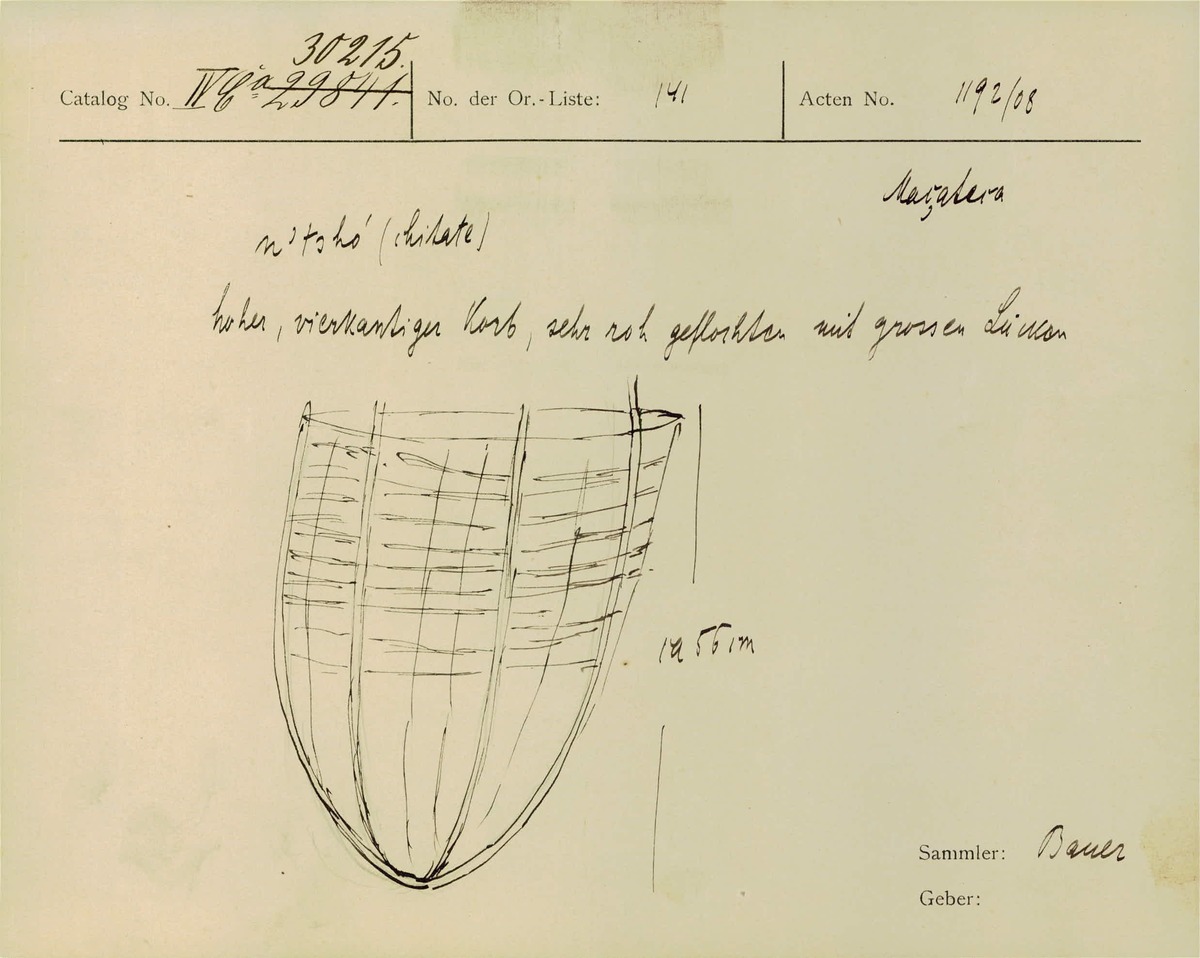 30215.
Catalog No. IV Ca 29841. No. der Or.-Liste: 141 Acten No. 1192/08
Maçateca
(chitate)
hoher, vierkantiger Korb, sehr roh geflochten mit grossen Lücken
ca 55 cm
Sammler: Bauer
Geber: